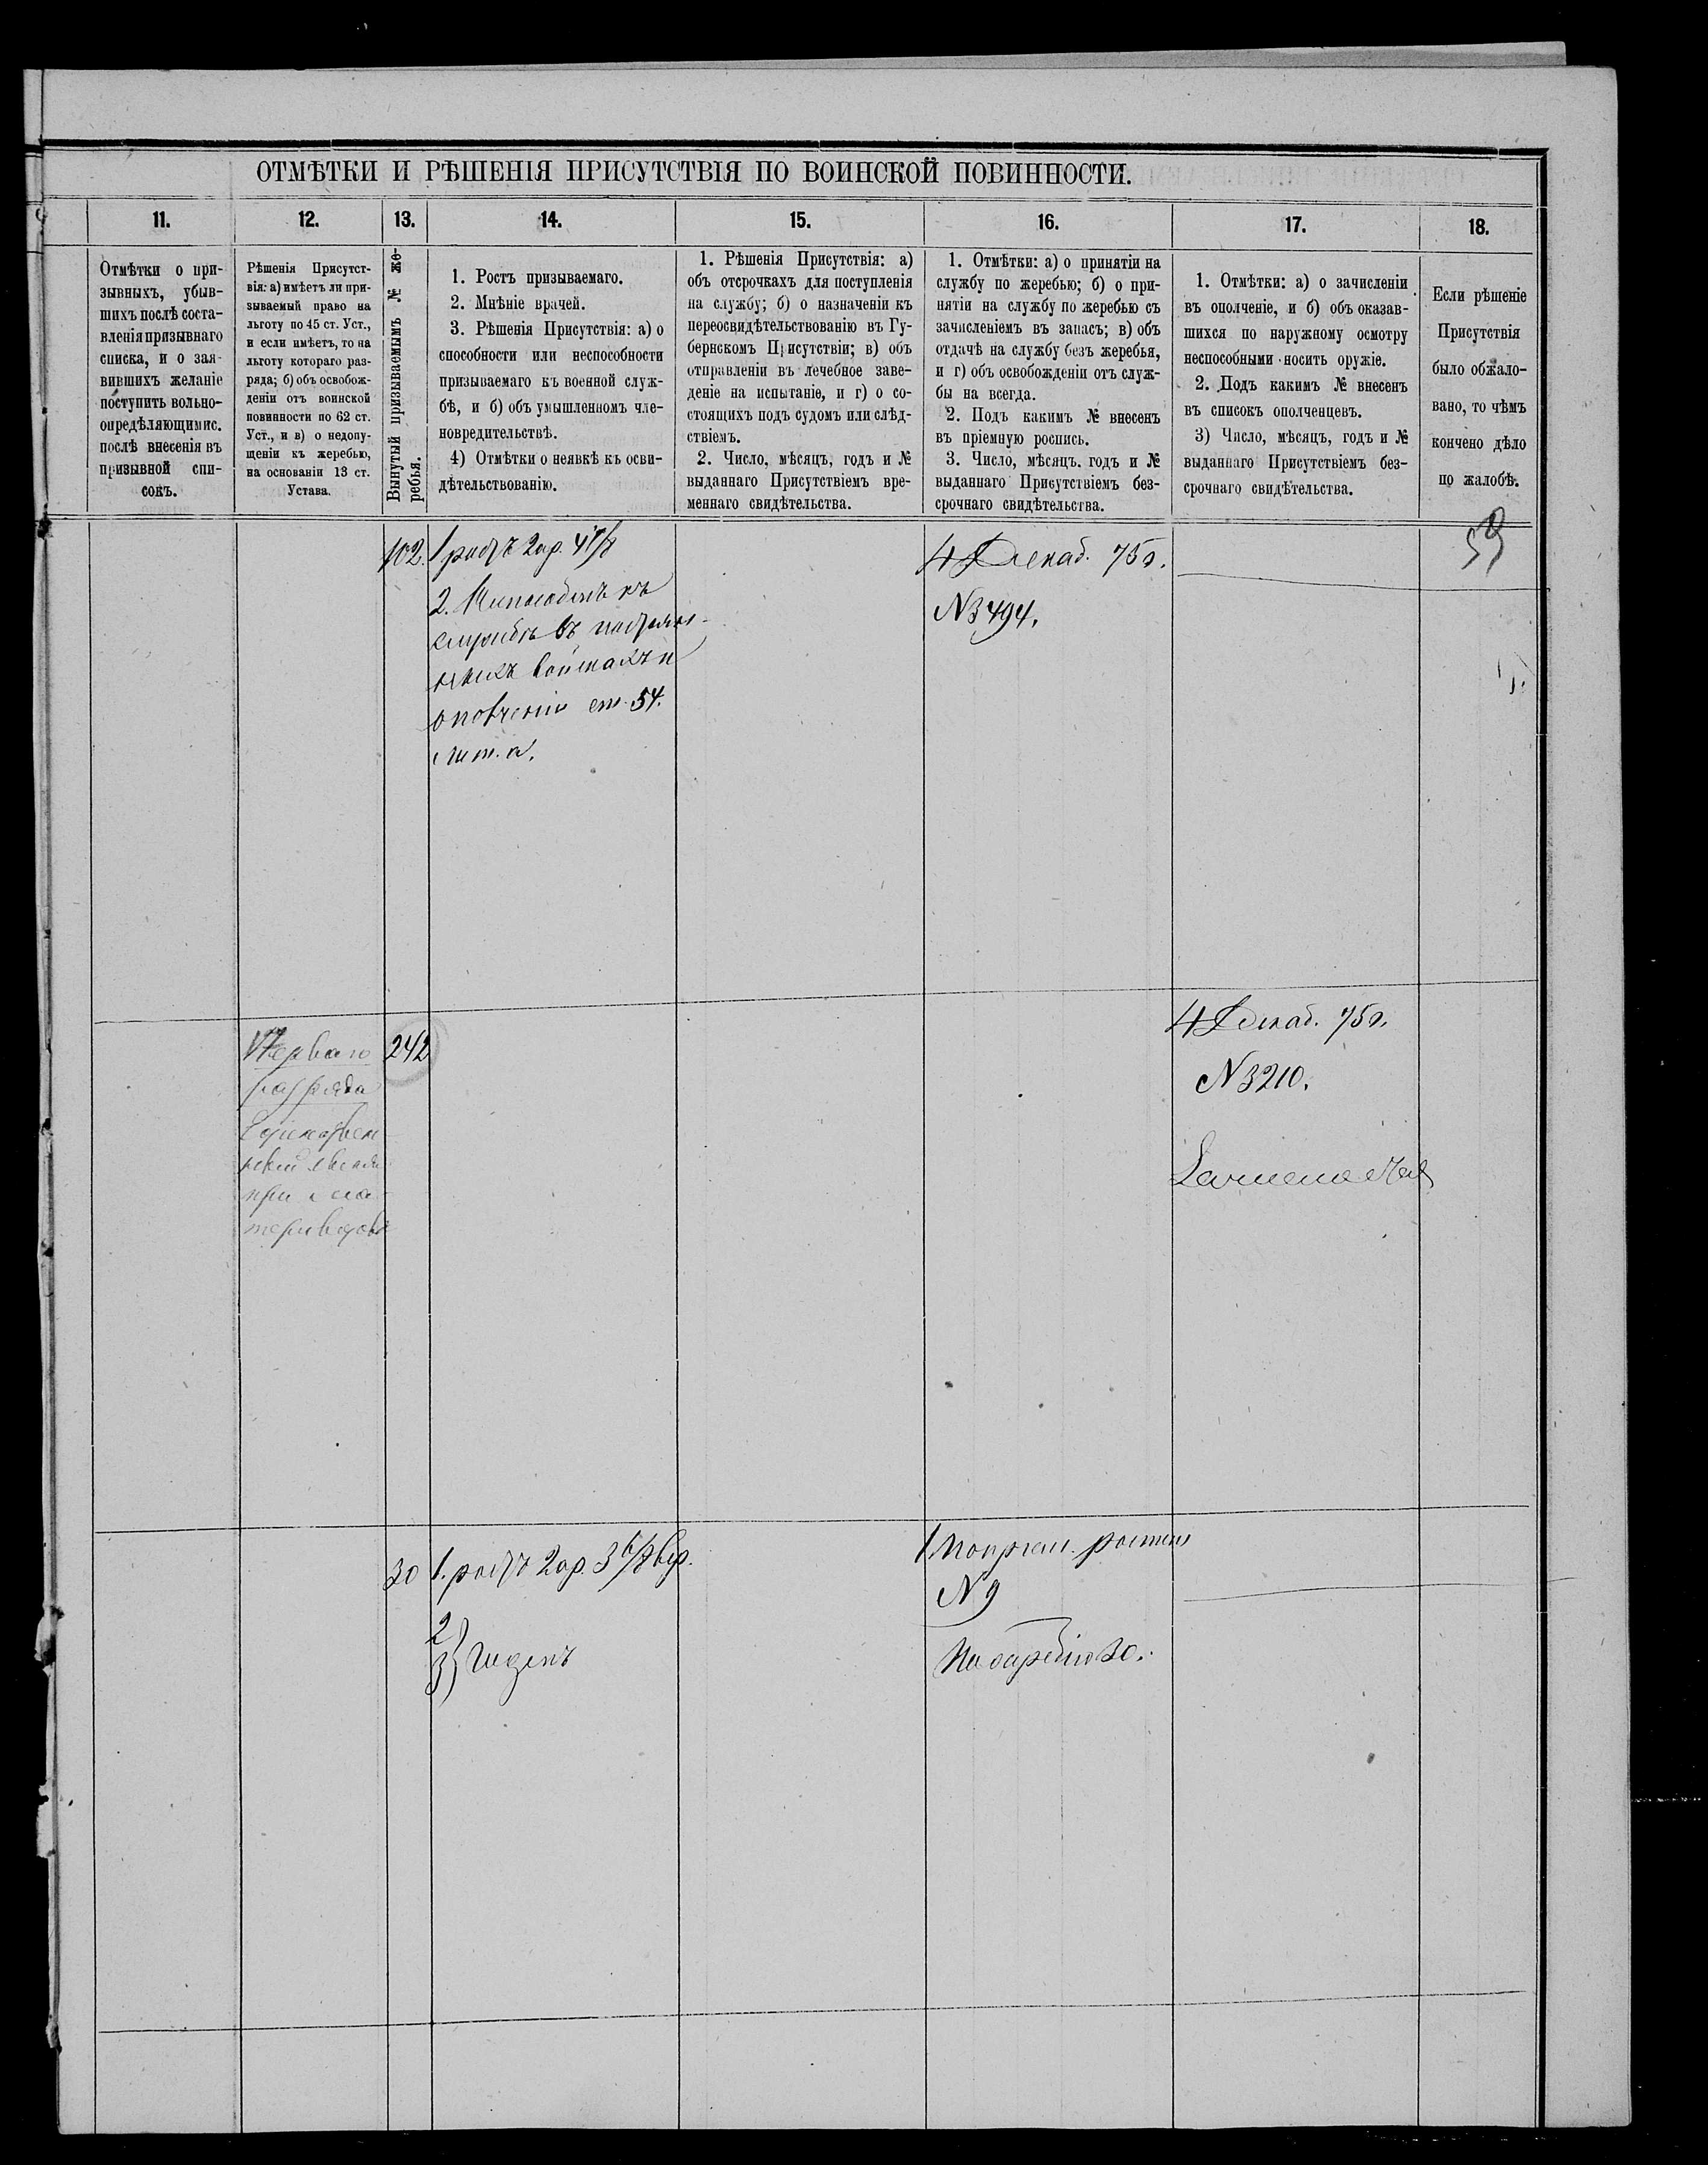 ОТМѢТКИ И РѢШЕНІЯ ПРИСУТСТВІЯ ПО ВОИНСКОЙ ПОВИННОСТИ.
11.
12.
13.
14.
15.
16.
17.
18.
Отмѣтки о при-
зывныхъ, убыв-
шихъ послѣ соста-
вленія призывнаго
списка, и о зая-
вившихъ желаніе
поступить вольно-
опредѣляющимис.
послѣ внесенія въ
призывной спи-
сокъ.
Рѣшенія Присутст-
вія: а) имѣетъ ли при-
зываемый право на
льготу по 45 ст. Уст.,
и если имѣетъ, то на
льготу котораго раз-
ряда; б) объ освобож-
деніи отъ воинской
повинности по 62 ст.
Уст., и в) о недопу-
щеніи къ жеребью,
на основаніи 13 ст.
Устава.
Вынутый призываемымъ № же-
ребья.
1. Ростъ призываемаго.
2. Мнѣніе врачей.
3. Рѣшенія Присутствія: а) о
способности или неспособности
призываемаго къ военной служ-
бѣ, и б) объ умышленномъ чле-
новредительствѣ.
4) Отмѣтки о неявкѣ къ осви-
дѣтельствованію.
1. Рѣшенія Присутствія: а)
объ отсрочкахъ для поступленія
на службу; б) о назначеніи къ
переосвидѣтельствованію въ Гу-
бернскомъ Присутствіи; в) объ
отправленіи въ лечебное заве-
деніе на испытаніе, и г) о со-
стоящихъ подъ судомъ или слѣд-
ствіемъ.
2. Число, мѣсяцъ, годъ и №
выданнаго Присутствіемъ вре-
меннаго свидѣтельства.
1. Отмѣтки: а) о принятіи на
службу по жеребью; б) о при-
нятіи на службу по жеребью съ
зачисленіемъ въ запасъ; в) объ
отдачѣ на службу безъ жеребья,
и г) объ освобожденіи отъ служ-
бы на всегда.
2. Подъ какимъ № внесенъ
въ пріемную роспись.
3. Число, мѣсяцъ. годъ и №
выданнаго Присутствіемъ без-
срочнаго свидѣтельства.
1. Отмѣтки: а) о зачисленіи
въ ополченіе, и б) объ оказав-
шихся по наружному осмотру
неспособными носить оружіе.
2. Подъ какимъ № внесенъ
въ списокъ ополченцевъ.
3) Число, мѣсяцъ, годъ и №
выданнаго Присутствіемъ без-
срочнаго свидѣтельства.
Если рѣшеніе
Присутствія
было обжало-
вано, то чѣмъ
кончено дѣло
по жалобѣ.
59
102. 1 ростъ 2 ар. 4 1/8
2. Неспособенъ къ
службѣ въ постоян-
ныхъ войскахъ и
ополченіи ст. 54.
лит. а.
4 Декаб. 75 г.
№ 3494.
Перваго
разряда
при ма-
тери вдовѣ
242
4 Декаб. 75 г.
№ 3210.
30 1. ростъ 2 ар. 3 6/8 вер.
2
3} Годенъ
1 по пріем. росписи
№ 9
По жребію 30.